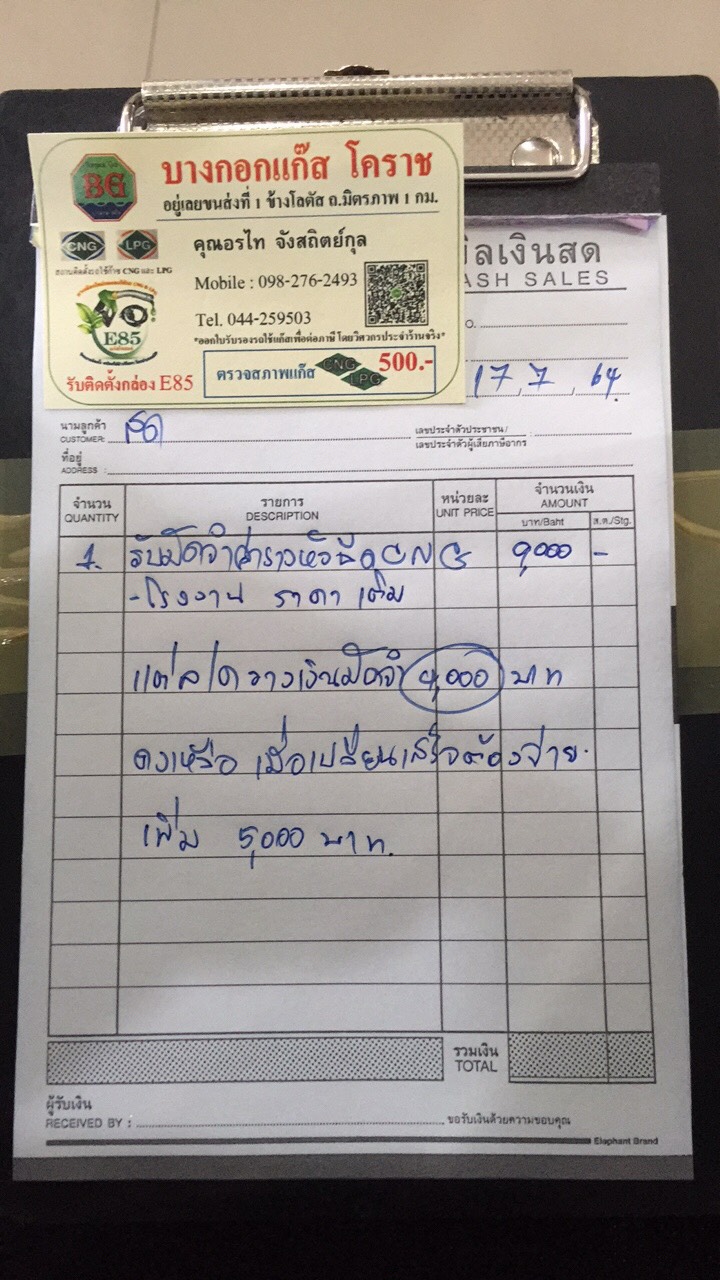 BG
บางกอกแก๊ส โคราช
อยู่เลยขนส่งที่ 1 ข้างโลตัส ถ.มิตรภาพ 1 กม.
CNG LPG
สถานติดตั้งรถใช้ก๊าซ CNG และ LPG
คุณอรไท จังสถิตย์กุล
Mobile : 098-276-2493
Tel. 044-259503
*ออกใบรับรองรถใช้แก๊สเพื่อต่อภาษี โดยวิศวกรประจำร้านจริง*
E85
รับติดตั้งกล่อง E85
ตรวจสภาพแก๊ส CNG LPG 500.-
บิลเงินสด
CASH SALES
NO.
17 7 64
นามลูกค้า
CUSTOMER: สด
เลขประจำตัวประชาชน /
เลขประจำตัวผู้เสียภาษีอากร :
ที่อยู่
ADDRESS :
จำนวน รายการ หน่วยละ จำนวนเงิน
QUANTITY DESCRIPTION UNIT PRICE AMOUNT
บาท/Baht ส.ต./Stg.
1. รับมัดจำค่ารางหัวฉีด CNG 9,000 -
-โรงงาน ราคาเต็ม
แต่ลูกค้าวางเงินมัดจำ 4,000 บาท
คงเหลือ เมื่อเปลี่ยนเสร็จต้องจ่าย
เพิ่ม 5,000 บาท.
รวมเงิน
TOTAL
ผู้รับเงิน
RECEIVED BY : ขอรับเงินด้วยความขอบคุณ
Elephant Brand